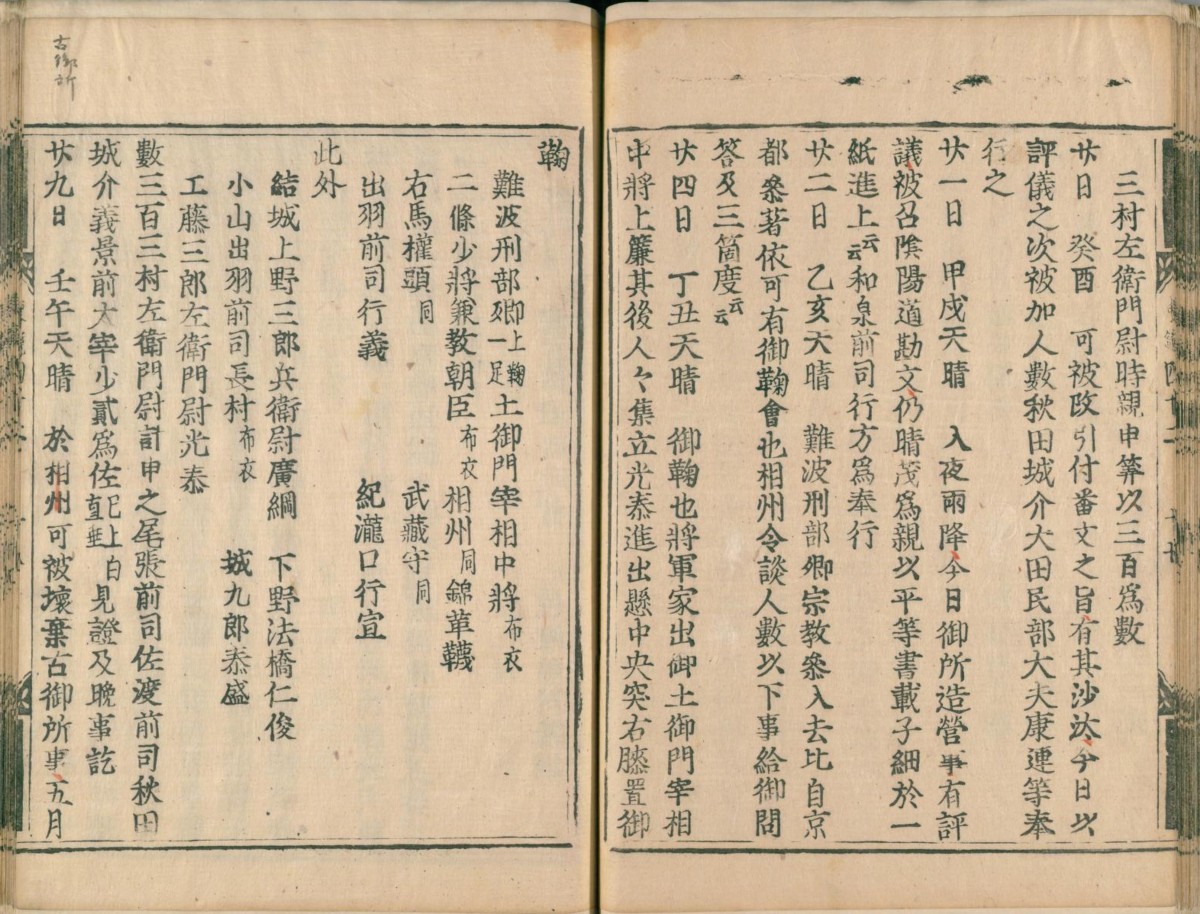 三村左衛門尉時親申筭以三百爲數
廿日　癸酉　可被改引付番文之旨有其沙汰今日以
評儀之次被加人數秋田城介大田民部大夫康連等奉
行之
廿一日　甲戌天晴　入夜雨降今日御所造營事有評
議被召陰陽道勘文仍晴茂爲親以平等書載子細於一
紙進上云云和泉前司行方爲奉行
廿二日　乙亥天晴　難波刑部卿宗教參入去比自京
都參著依可有御鞠會也相州令談人數以下事給御問
答及三箇度云云
廿四日　丁丑天晴　御鞠也將軍家出御土御門宰相
中將上簾其後人々集立光泰進出懸中央突右膝置御
鞠
難波刑部卿上鞠一足土御門宰相中將布衣
二條少將兼教朝臣布衣相州同錦革韈
右馬權頭同　武藏守同
出羽前司行義　紀瀧口行宣
此外
結城上野三郎兵衛尉廣綱　下野法橋仁俊
小山出羽前司長村布衣　城九郎泰盛
工藤三郎左衛門尉光泰
數三百三村左衛門尉計申之尾張前司佐渡前司秋田
城介義景前大宰少貳爲佐已上白直垂見證及晚事訖
廿九日　壬午天晴　於相州可被壞棄古御所事五月
古御所